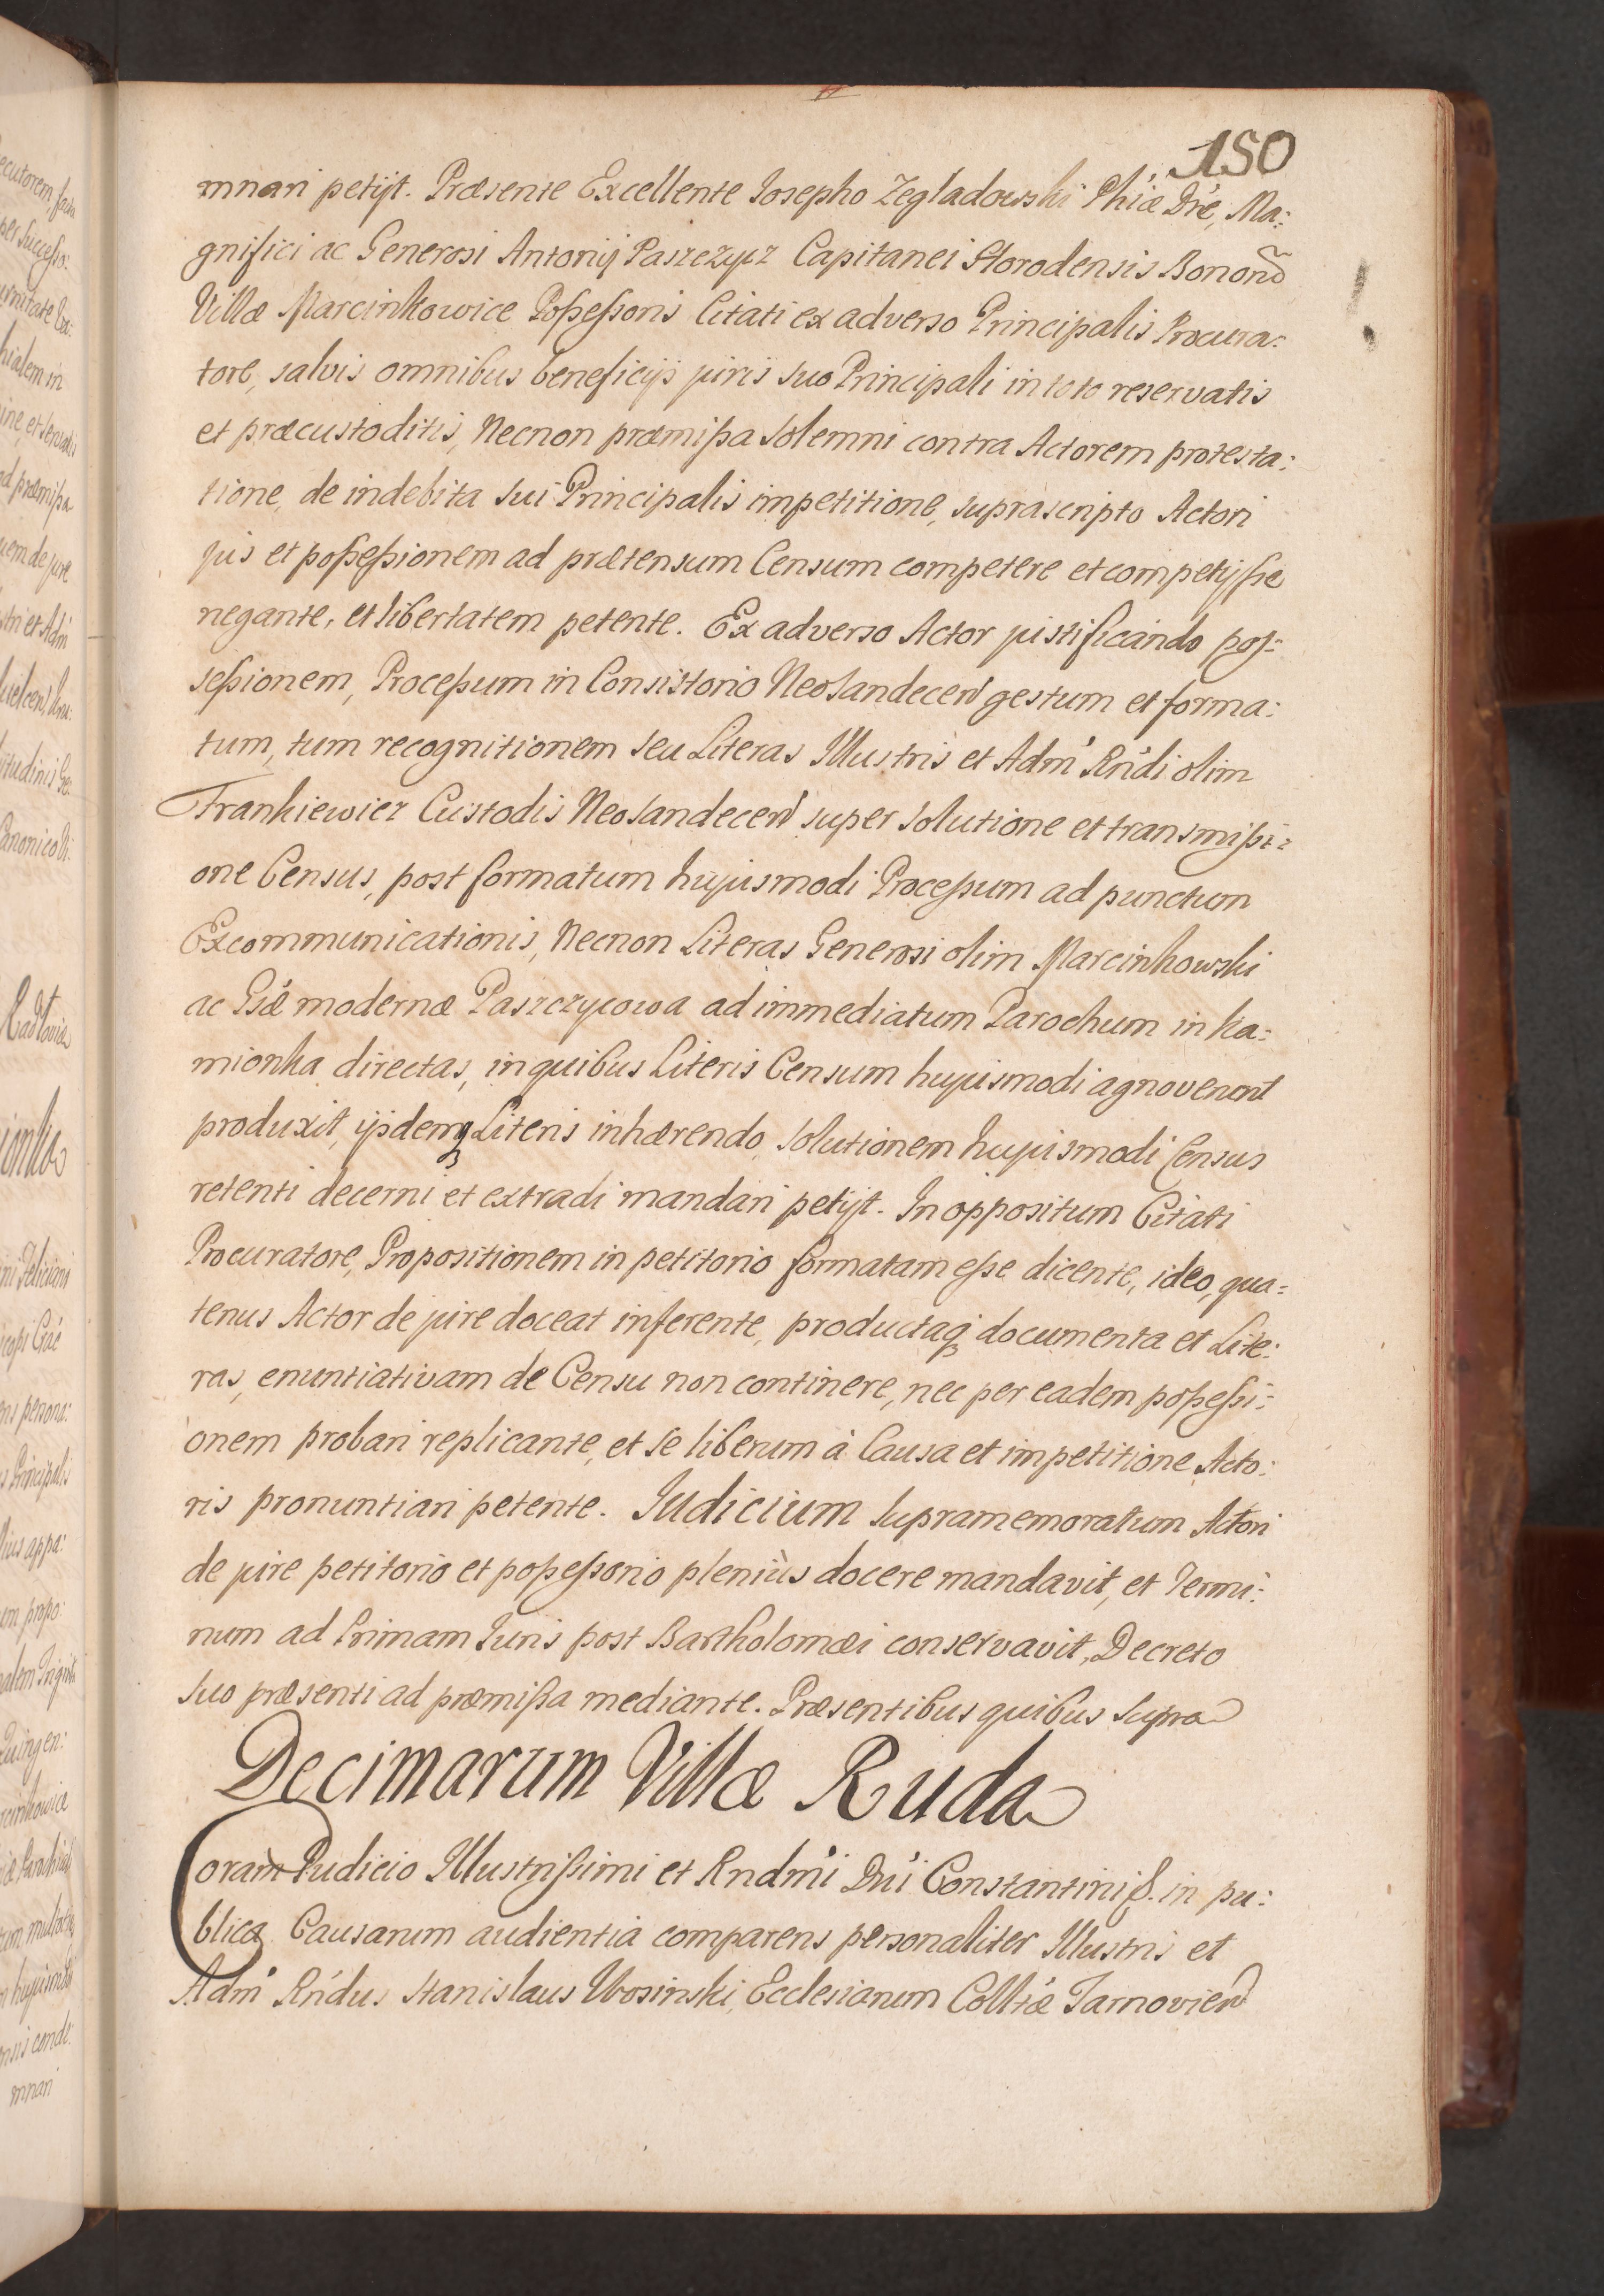 150
mnari petijt. Præsente Excellente Josepho Zegladowski Phiæ Dre, Ma:
gnifici ac Generosi Antonij Paszczycz Capitanei Horodensis Bonorũ
Villæ Marcinkowice Poßeßoris Citati ex adverso Principalis Procura:
tore, salvis omnibus beneficijs juris suo Principali in toto reservatis
et præcustoditis, Necnon præmißa Solemni contra Actorem protesta:
tione, de indebita sui Principalis impetitione, suprascripto Actori
jus et poßeßionem ad prætensum Censum competere et competijße
negante, et libertatem petente. Ex adverso Actor justificando pos:
seßionem, Proceßum in Consistorio Neosandecen gestum et forma:
tum, tum recognitionem seu Literas Illustris et Adm Rndi olim
Frankiewicz Custodis Neosandecen super solutione et transmißi:
one Census, post formatum hujusmodi Proceßum ad punctum
Excommunicationis, Necnon Literas Generosi olim Marcinkowski
ac Gsæ modernæ Paszczycowa ad immediatum Parochum in Ka:
mionka directas, in quibus Literis Censum hujusmodi agnoverunt
produxit, ijsdemq Literis inhærendo, solutionem hujusmodi Census
retenti decerni et extradi mandari petijt. In oppositum Citati
Procuratore, Propositionem in petitorio formatam eße dicente, ideo, qua:
tenus Actor de jure doceat inferente, productaq documenta et Lite:
ras, enuntiativam de Censu non continere, nec per eadem poßeßi:
onem probari replicante, et se liberum à Causa et impetitione Acto:
ris pronuntiari petente. Judicium supramemoratum Actori
de jure petitorio et poßeßorio pleniùs docere mandavit, et Termi:
num ad Primam Juris post Bartholomæi conservavit, Decreto
suo præsenti ad præmißa mediante. Præsentibus quibus supra
Decimarum Villæ Ruda
Coram Judicio Illustrißimi et Rndmi Dni Constantini S. in pu:
blica Causarum audientia comparens personaliter Illustris et
Adm Rndus Stanislaus Wosinski, Ecclesiarum Colltæ Tarnovien